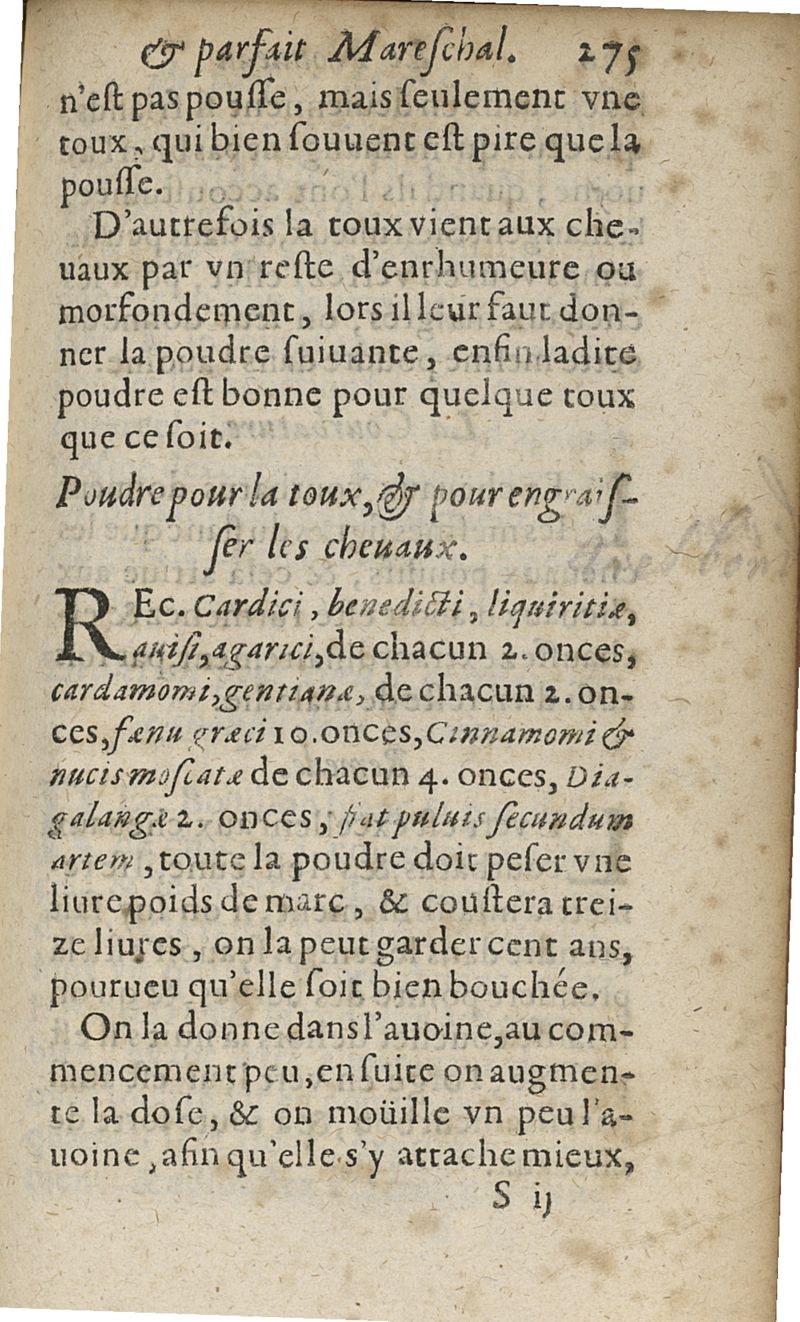 & parfait Mareſchal. 275
n'eſt pas pouſſe, mais ſeulement vne
toux, qui bien ſouuent eſt pire que la
pouſſe.
D'autrefois la toux vient aux che-
uaux par vn reſte d'enrhumeure ou
morfondement, lors il leur faut don-
ner la poudre ſuiuante, enfin ladite
poudre eſt bonne pour quelque toux
que ce ſoit.
Poudre pour la toux, & pour engraiſ-
ſer les cheuaux.
REc. Cardici, benedicti, liquiritiæ,
aniſi, agarici, de chacun 2. onces,
cardamomi, gentianæ, de chacun 2. on-
ces, fænu græci 10. onces, Cinnamomi &
nucis moſcatæ de chacun 4. onces, Dia-
galangæ 2. onces, fiat puluis ſecundum
artem, toute la poudre doit peſer vne
liure poids de marc, & couſtera trei-
ze liures, on la peut garder cent ans,
pourueu qu'elle ſoit bien bouchée.
On la donne dans l'auoine, au com-
mencement peu, en ſuite on augmen-
te la doſe, & on moüille vn peu l'a-
uoine, afin qu'elle s'y attache mieux,
S ij